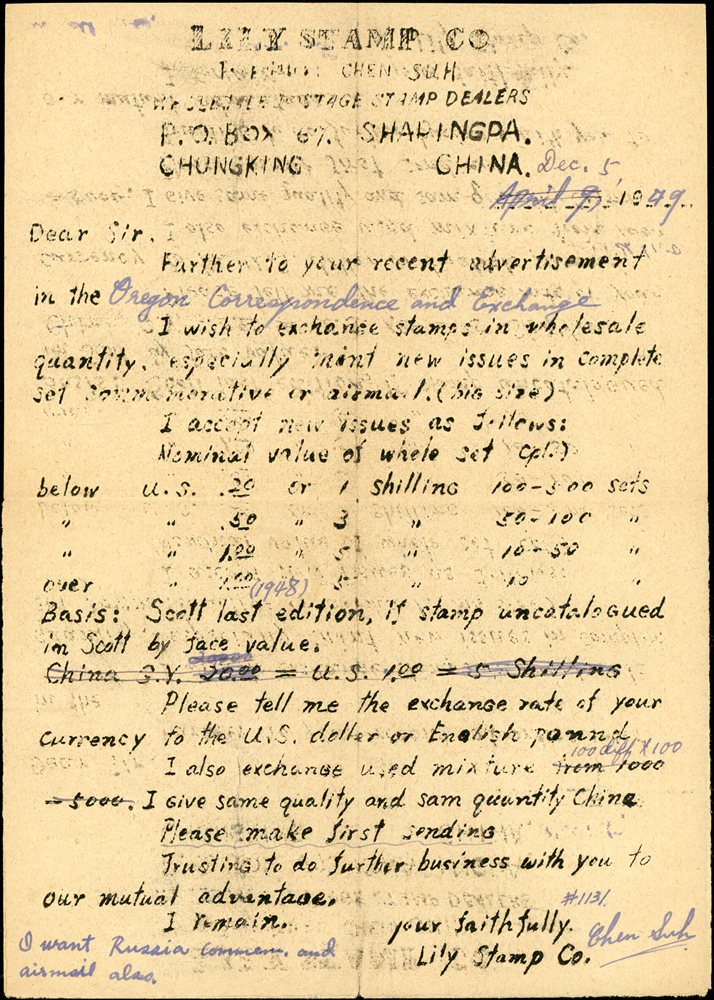 LILY STAMP CO
CHEN SUH
STAGE STAMP DEALERS
P.O. BOX 67. SHAPINGPA.
CHUNGKING CHINA. Dec. 5,
April 9, 1949.
Dear Sir.
Further to your recent advertisement
in the Oregon Correspondence and Exchange
I wish to exchange stamps in wholesale
quantity. especially mint new issues in complete
set commemorative or airmail. (big size)
I accept new issues as follows:
Nominal value of whole set (cpl.)
below U.S. .20 or 1 shilling 100-500 sets
" " .50 " 3 " 50-100 "
" " 1.00 " 5 " 10-50 "
over " 1.00 " 5 " 10 "
(1948)
Basis: Scott last edition, if stamp uncatalogued
in Scott by face value.
China G.Y. 20.00 = U.S. 1.00 = 5 Shilling
Please tell me the exchange rate of your
currency to the U.S. doller or English pound
100 diff X 100
I also exchange used mixture from 1000
-5000. I give same quality and sam quantity China
Please make first sending
Trusting to do further business with you to
our mutual advantage. #1131
I remain. your faithfully.
Lily Stamp Co. Chen Suh
I want Russia commem. and
airmail also.